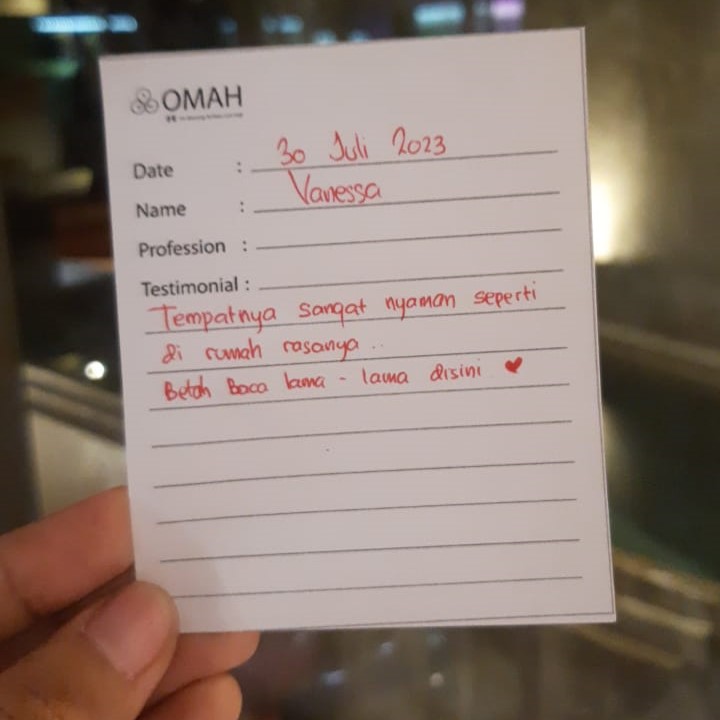 OMAH
Date : 30 Juli 2023
Name : Vanessa
Profession :
Testimonial :
Tempatnya sangat nyaman seperti
di rumah rasanya ..
Betah Baca lama - lama disini ♥